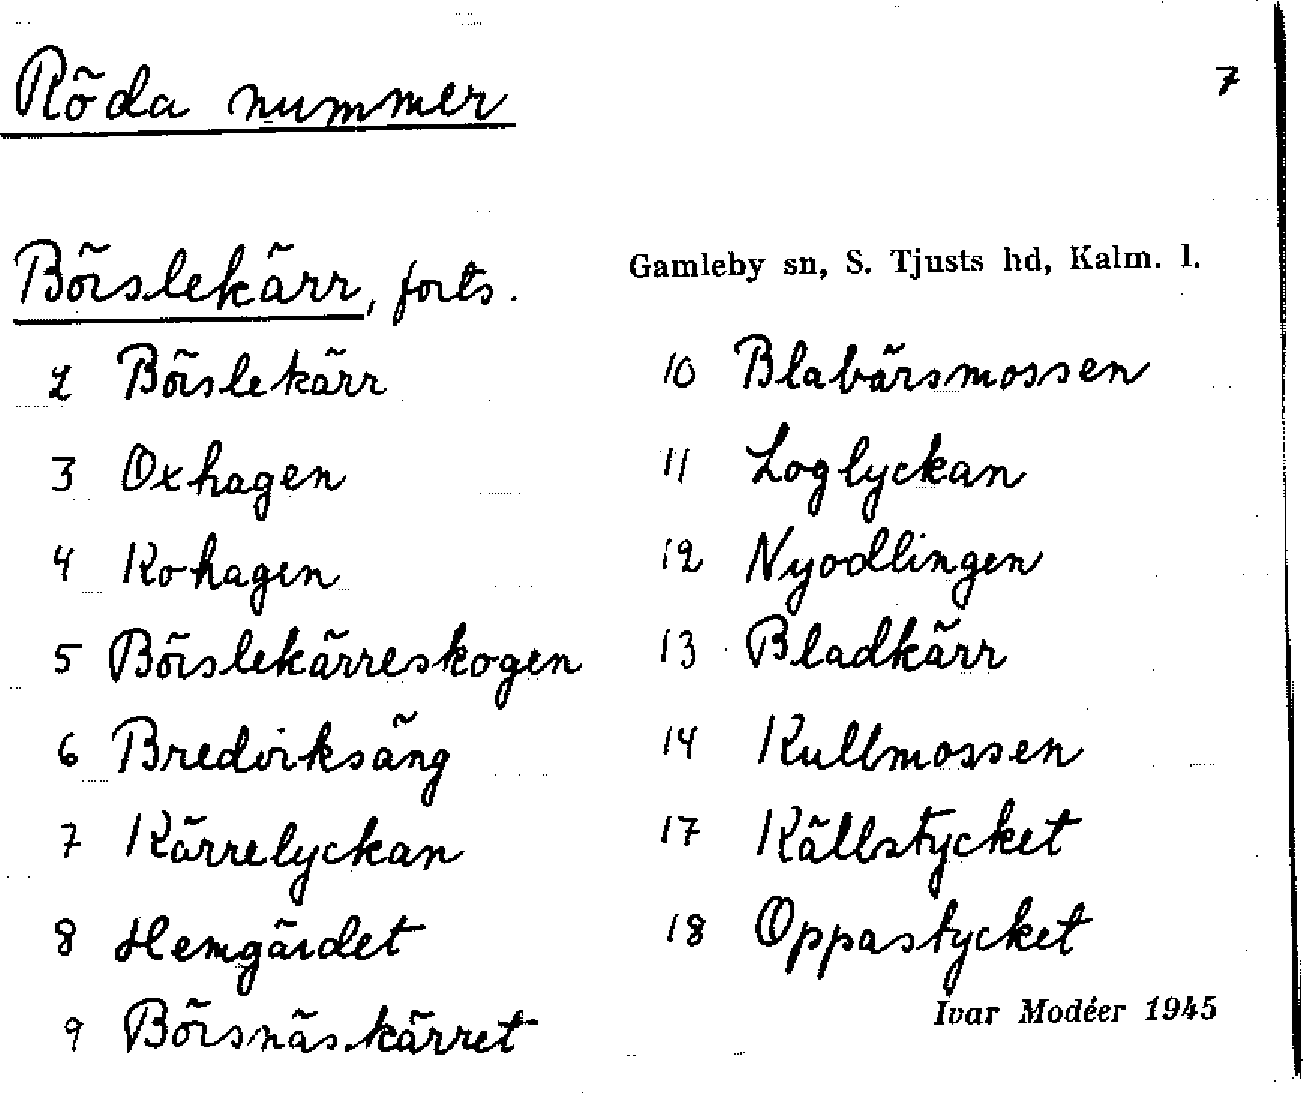 Röda nummer
7
Börslekärr, forts.
Gamleby sn, S. Tjusts hd, Kalm. l.
2 Börslekärr
3 Oxhagen
4 Kohagen
5 Börslekärreskogen
6 Bredviksäng
7 Kärrelyckan
8 Hemgärdet
9 Börsnäskärret
10 Blabärsmossen
11 Loglyckan
12 Nyodlingen
13 Bladkärr
14 Kullmossen
17 Källstycket
18 Oppastycket
Ivar Modéer 1945